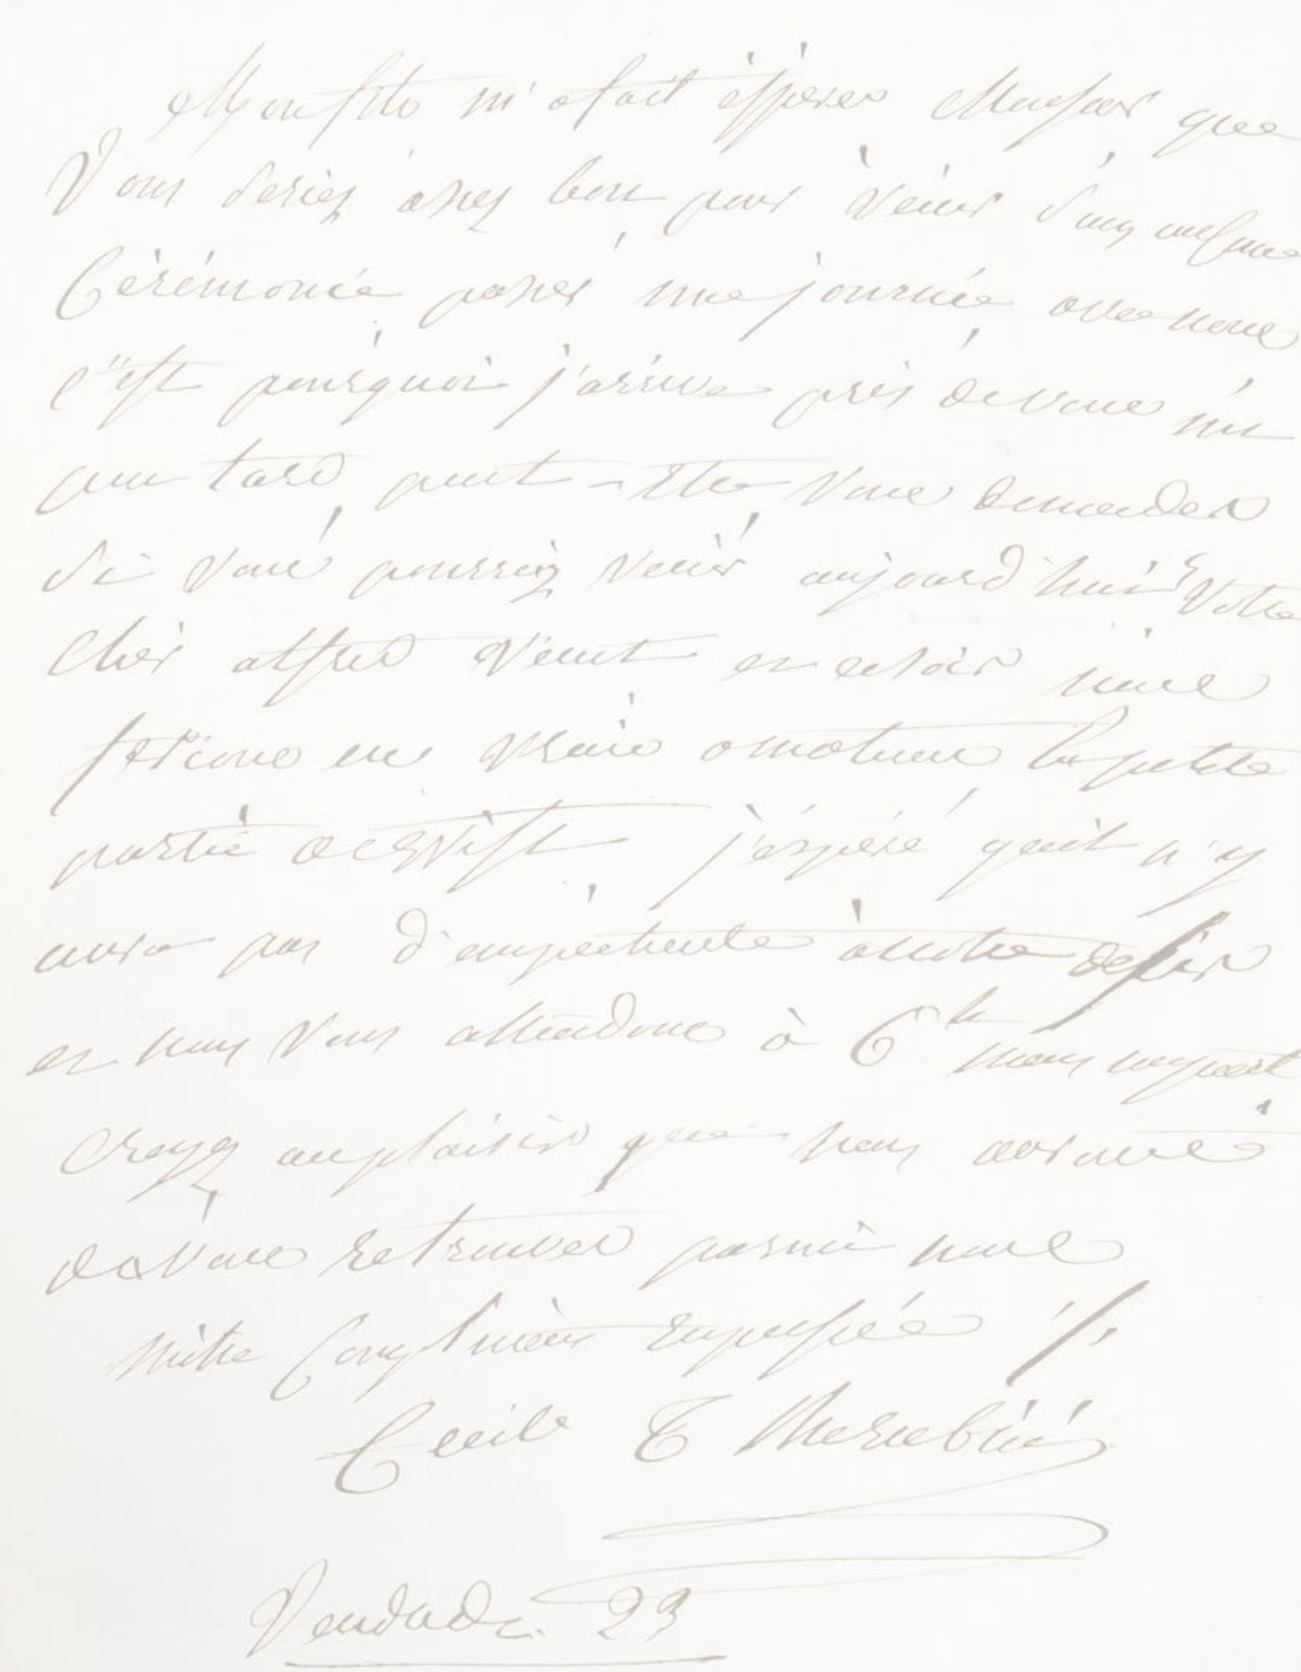 Mon fils m'a fait éspérer Monsieur que
Vous seriez assez bon pour venir sans aucune
Cérémonie passer une journée avec nous
c'est pourquoi j'arrive près de vous un
peu tard peut-etre vous demander
si vous pourriez venir aujourd'hui Votre
cher alfred vient ce soir nous
ferons en vrais amateurs la petite
partie de Whist j'éspère qu'il n'y
aura pas d' à notre desir
et nous vous attendons à 6h
Croyez au plaisir que nous aurons
de vous retrouver parmi nous
Mille Compliments empressés
Cecile T
Vendredi 23